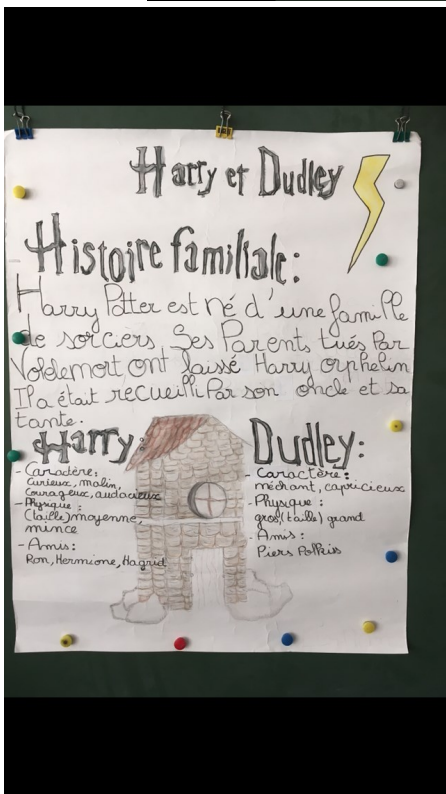 Harry et Dudley
Histoire familiale:
Harry Potter est né d'une famille
de sorciers Ses Parents tués Par
Voldemort ont laissé Harry orphelin
Il a était recueilli Par son oncle et sa
tante.
Harry:
- Caractère:
Curieux, malin,
Courageux, audacieux
- Physique :
(taille) moyenne,
mince
- Amis:
Ron, Hermione, Hagrid
Dudley:
- Caractère:
méchant, capricieux
- Physique :
gros (taille) grand
- Amis:
Piers